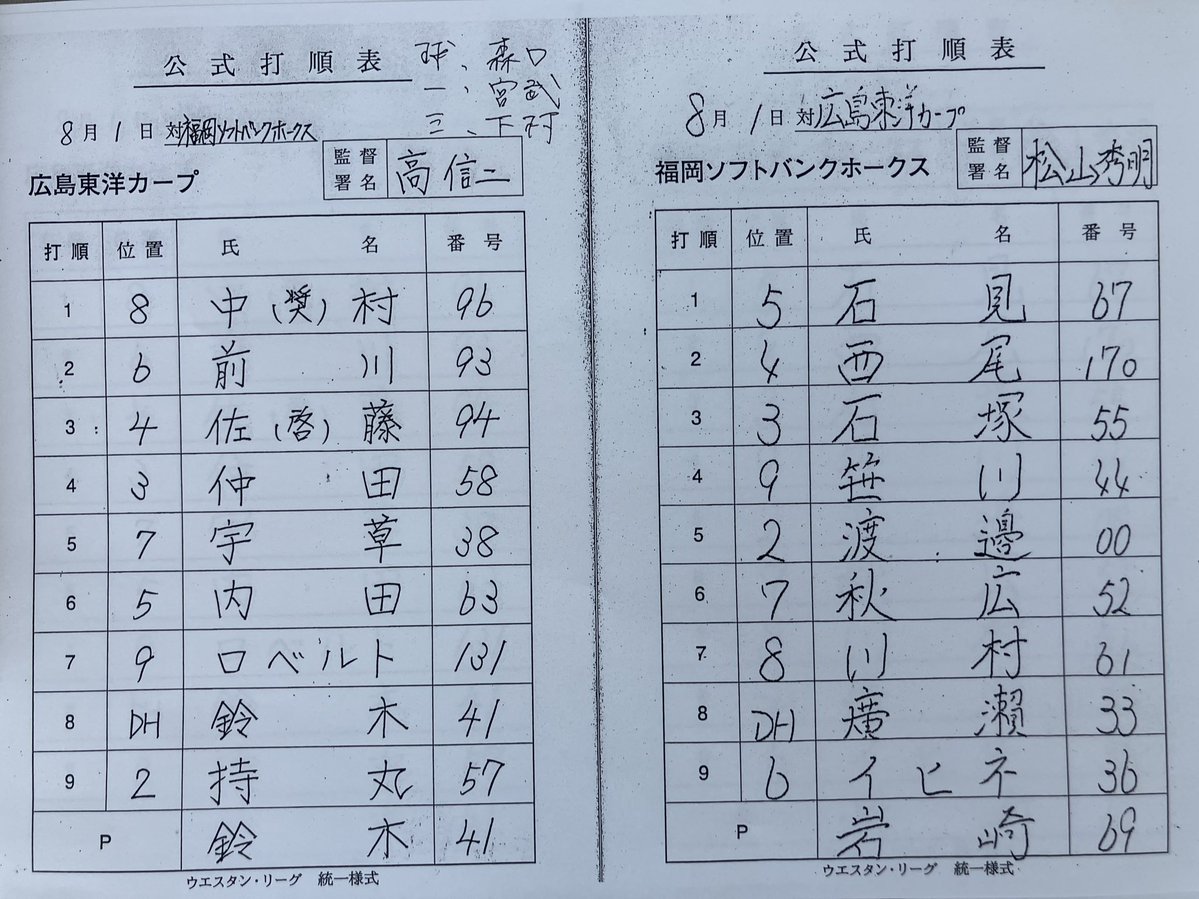 公式打順表
球、森口
一、宮武
三、下村
8月1日 対 福岡ソフトバンクホークス
監督署名 高信二
広島東洋カープ
打順 位置 氏名 番号
1 8 中(奨)村 96
2 6 前川 93
3 4 佐(啓)藤 94
4 3 仲田 58
5 7 宇草 38
6 5 内田 63
7 9 ロベルト 131
8 DH 鈴木 41
9 2 持丸 57
P 鈴木 41
ウエスタン・リーグ 統一様式
公式打順表
8月1日 対 広島東洋カープ
監督署名 松山秀明
福岡ソフトバンクホークス
打順 位置 氏名 番号
1 5 石見 67
2 4 西尾 170
3 3 石塚 55
4 9 笹川 44
5 2 渡邉 00
6 7 秋広 52
7 8 川村 61
8 DH 廣瀨 33
9 6 イヒネ 36
P 岩崎 69
ウエスタン・リーグ 統一様式